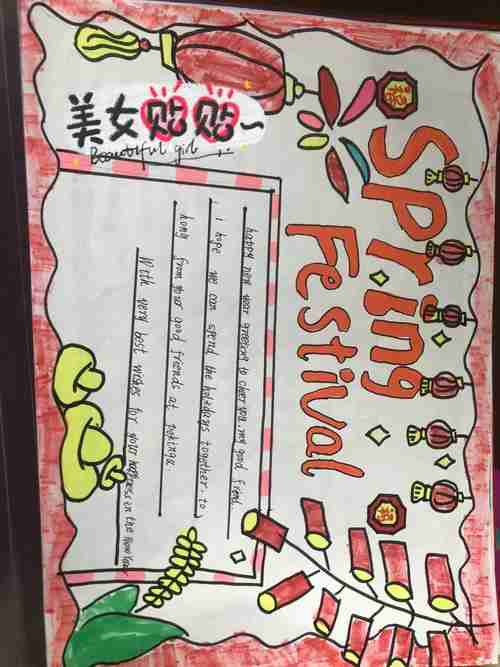 Spring
Festival
福
福
美女贴贴~
Beautiful girl
happy new year greeting to cheer you, my good friend.
i hope we can spend the holidays together. to
from your good friends at
With very best wishes for your happiness in the New Year